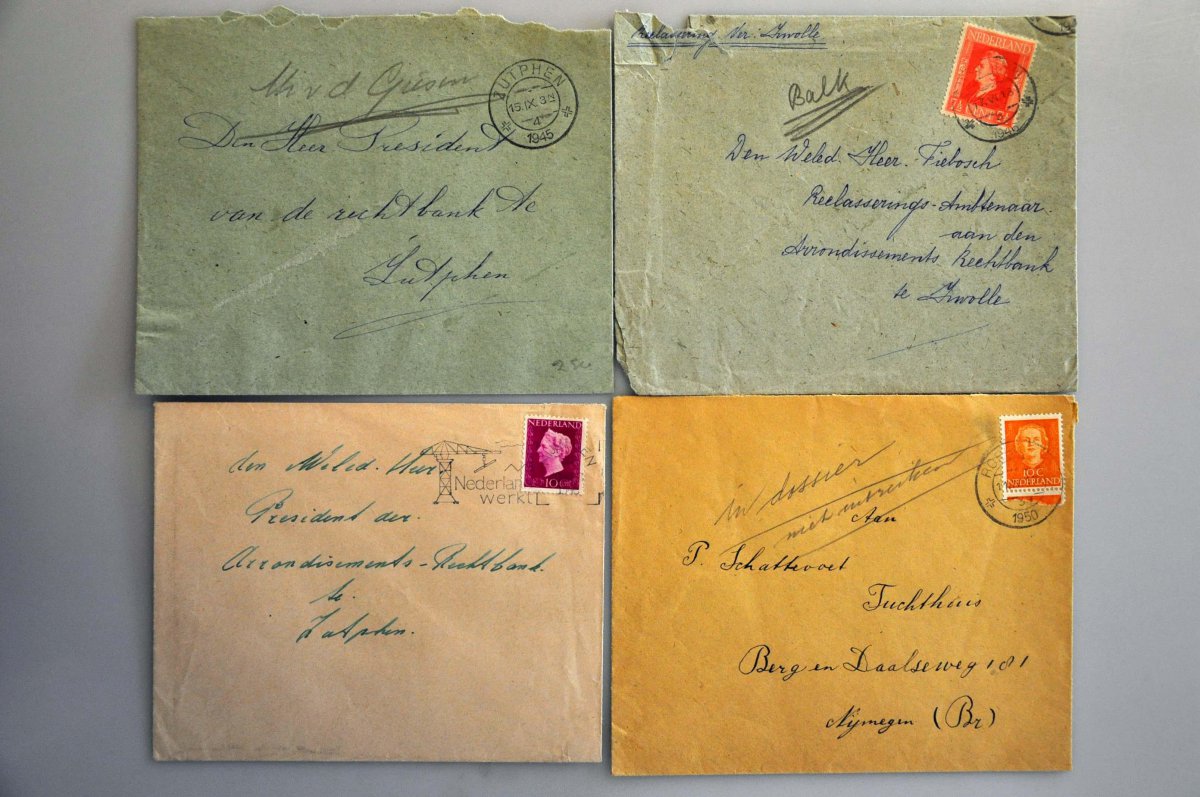 ZUTPHEN
15.IX.
4
1945
Den Heer President
van de rechtbank te
Zutphen
Reclassering ter: Zwolle
NEDERLAND
Balk
Den Weled. Heer. Fiebosch
Reclasserings-Ambtenaar
aan den
Arrondissements Rechtbank
te Zwolle
NEDERLAND
10
Nederland
werkt
den Weled. Heer
President der
Arrondisements-Rechtbank.
te.
Zutphen.
10 C
NEDERLAND
1950
in dossier
niet
Aan
P. Schattevoet
Tuchthuis
Berg en Daalseweg 181
Nijmegen (Br)